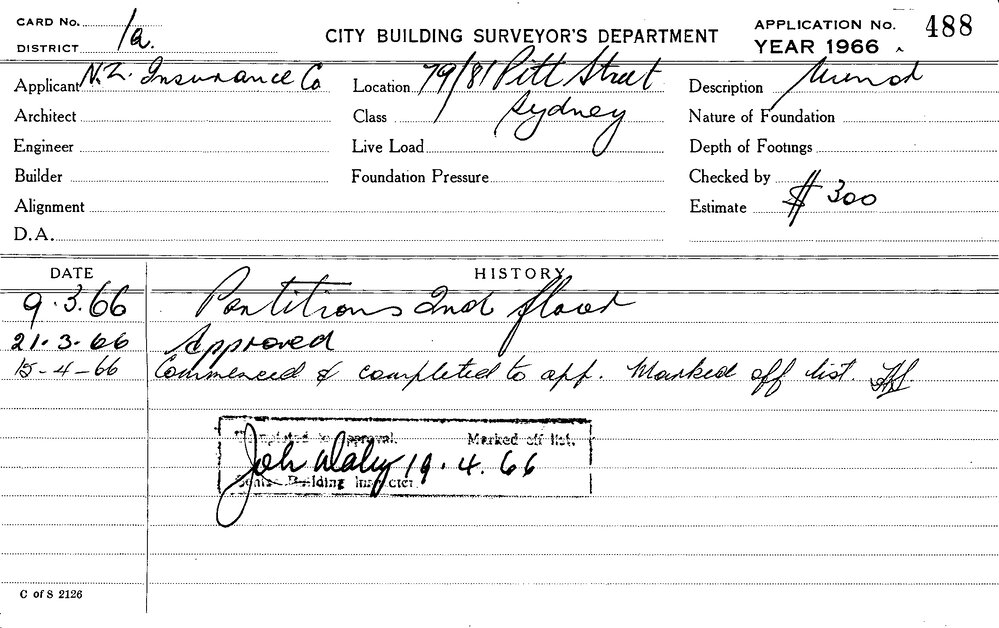 CARD No.
DISTRICT 1a.
CITY BUILDING SURVEYOR'S DEPARTMENT
APPLICATION No. 488
YEAR 1966
Applicant N.Z. Insurance Co
Location 79/81 Pitt Street
Description Minor
Architect
Class Sydney
Nature of Foundation
Engineer
Live Load
Depth of Footings
Builder
Foundation Pressure
Checked by
Alignment
Estimate $ 300
D.A.
DATE HISTORY
9.3.66 Partitions 2nd floor
21.3.66 Approved
15-4-66 Commenced & completed to app. Marked off list.
Completed to approval. Marked off list.
19.4.66
Senior Building Inspector.
C of S 2126